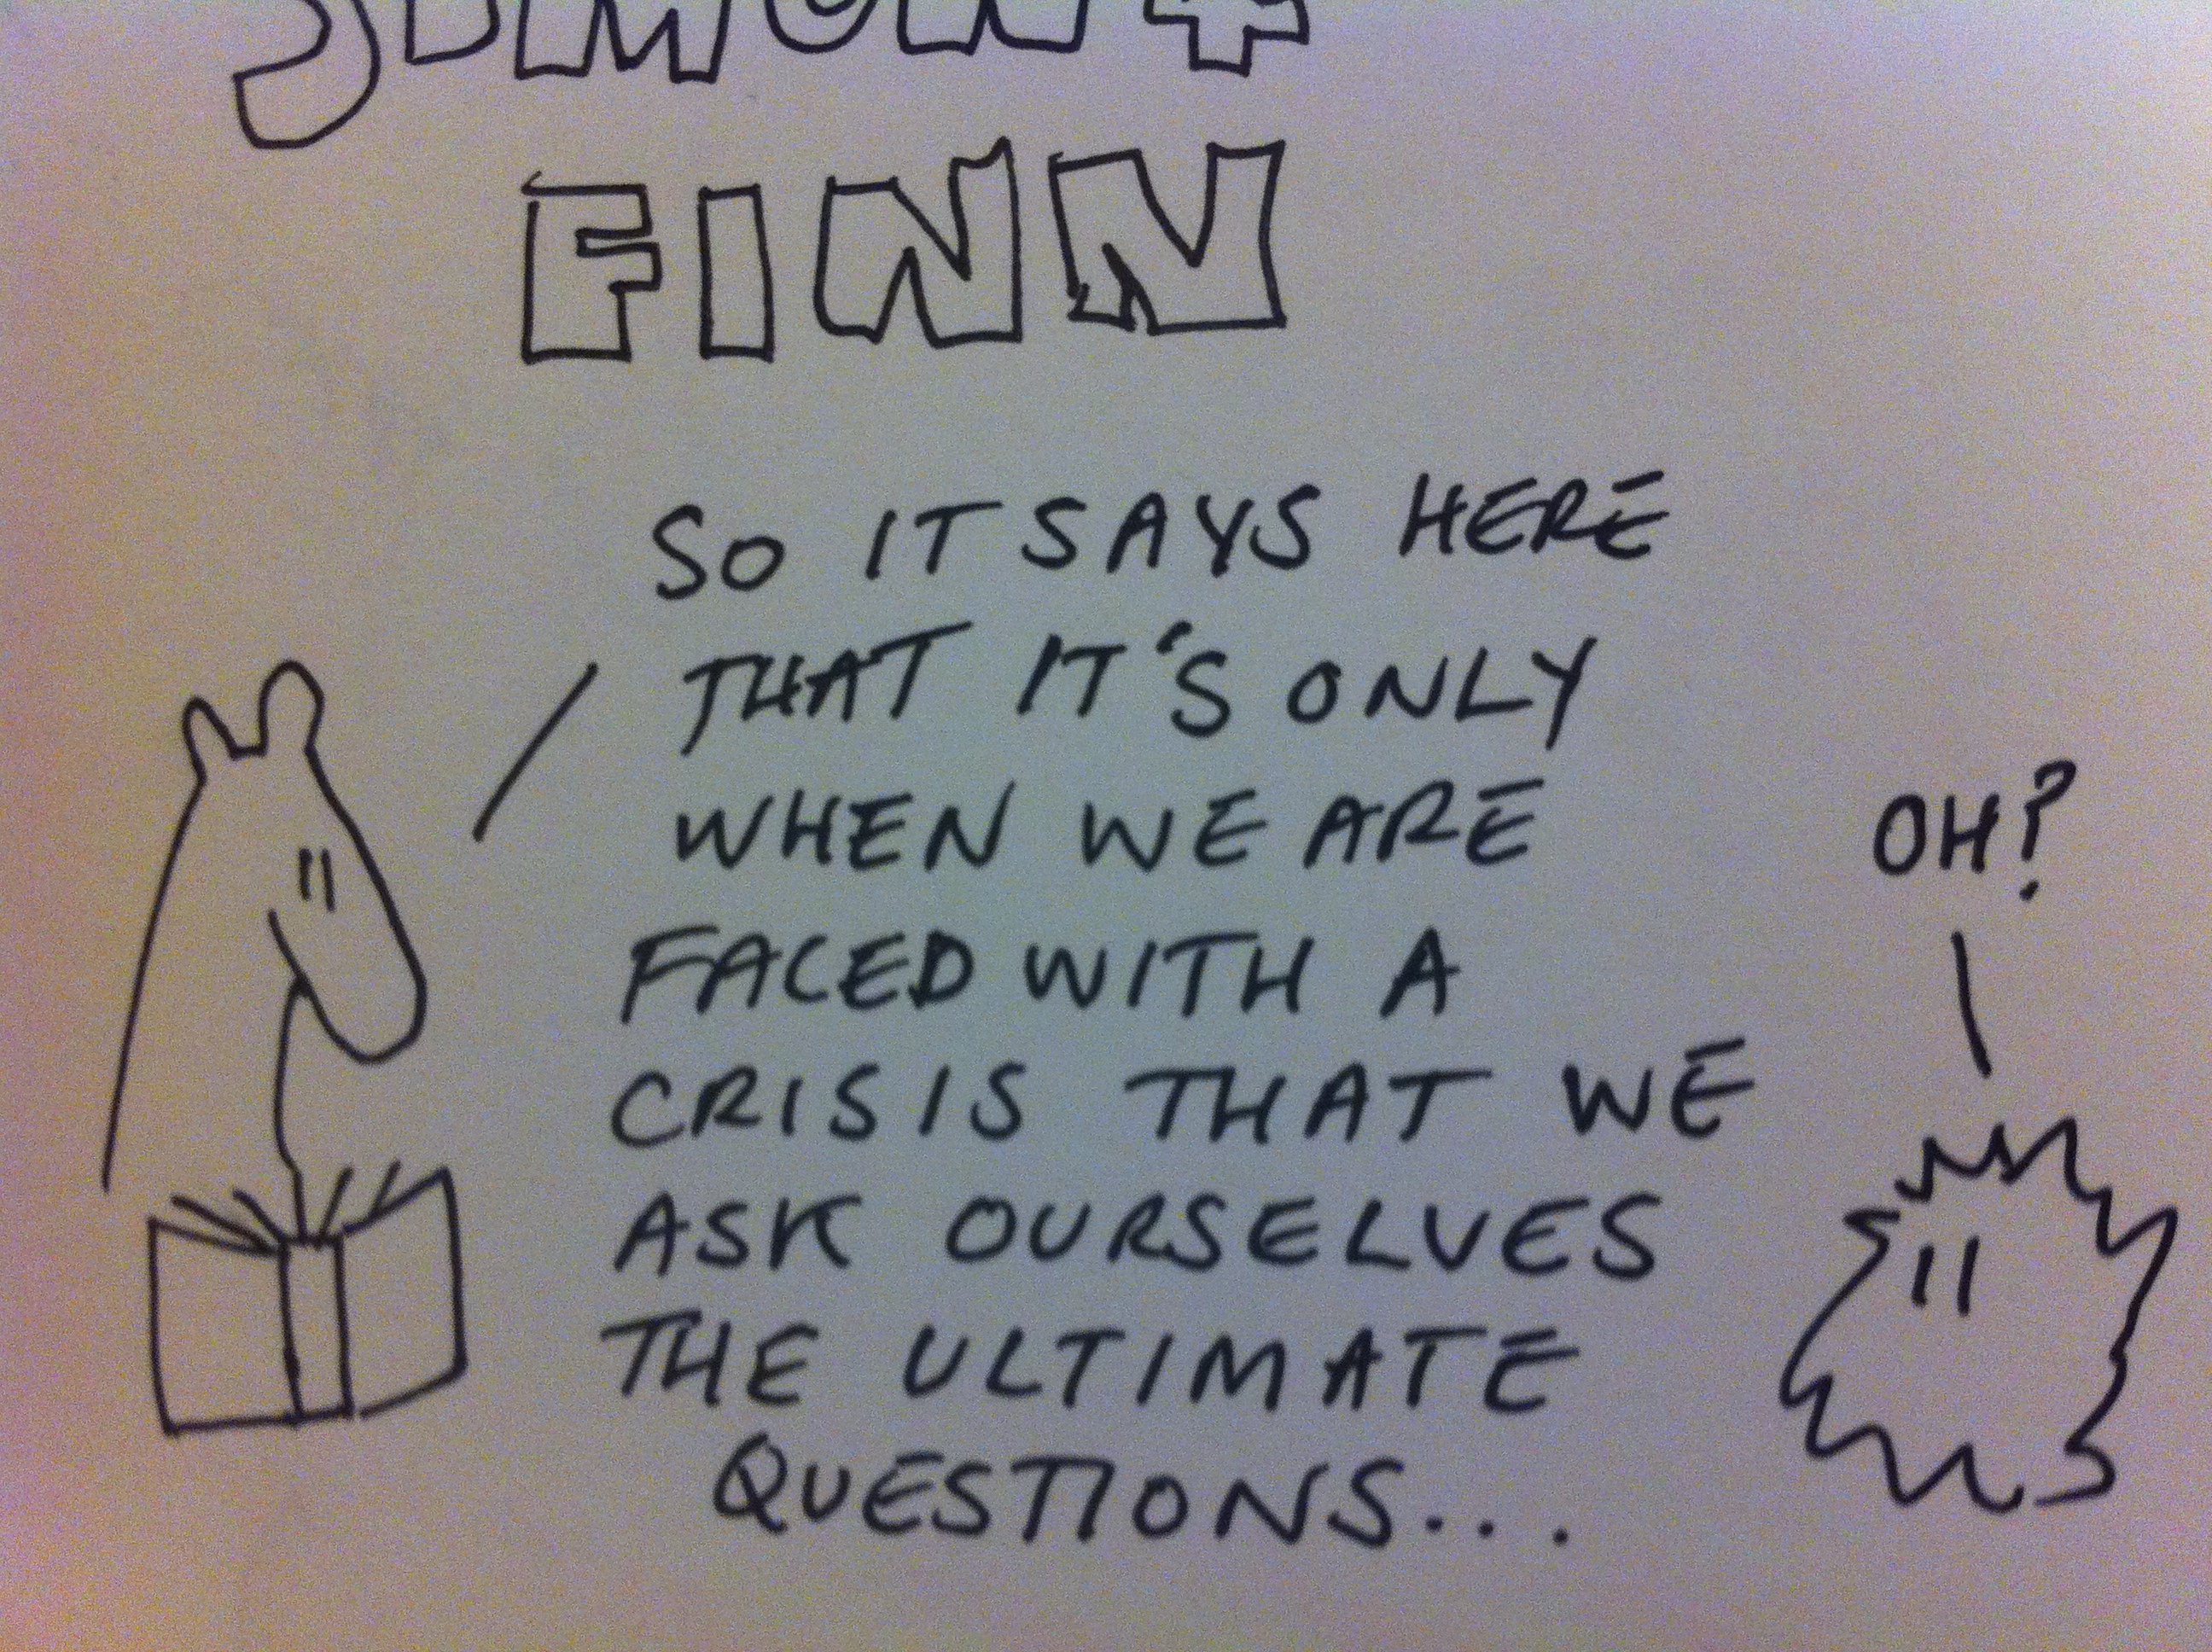 SIMON +
FINN
SO IT SAYS HERE
THAT IT'S ONLY
WHEN WE ARE
FACED WITH A
CRISIS THAT WE
ASK OURSELVES
THE ULTIMATE
QUESTIONS...
OH?